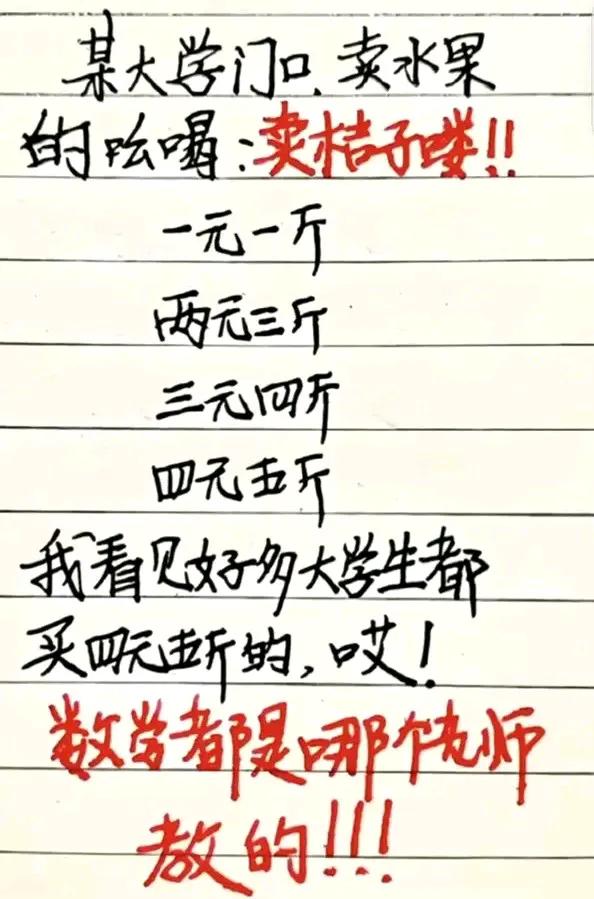 某大学门口，卖水果
的吆喝：卖桔子喽!!
一元一斤
两元三斤
三元四斤
四元五斤
我看见好多大学生都
买四元五斤的，哎！
数学都是哪个老师
教的!!!